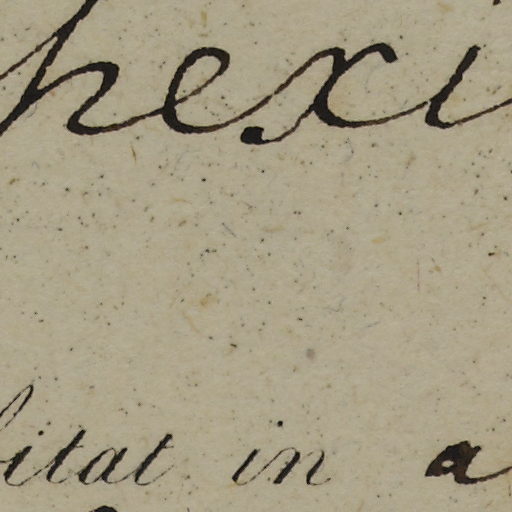 hexi
bitat in a